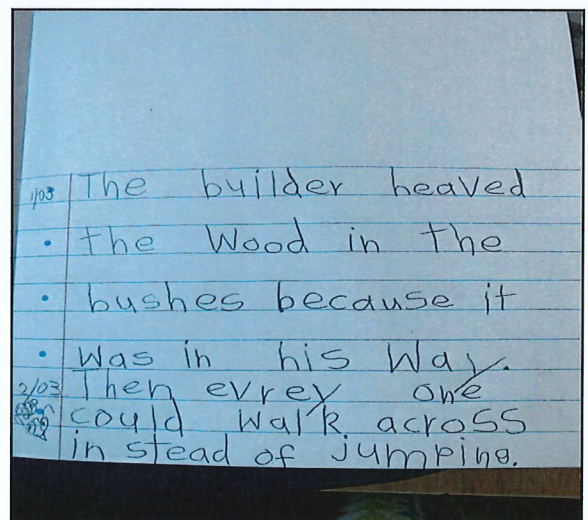 1/03 The builder heaved
the Wood in the
bushes because it
Was in his Way.
2/03 Then evrey one
could Walk across
in stead of jumping.